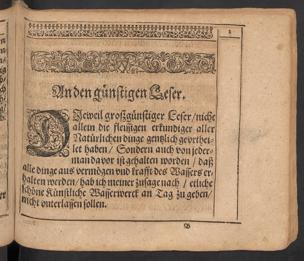 An den günstigen Leser.
DIeweil großgünstiger Leser/ nicht
allein die fleissigen erkundiger aller
Natürlichen dinge gentzlich geurthei-
let haben/ Sondern auch von jeder-
man davor ist gehalten worden/ daß
alle dinge aus vermögen und krafft des Wassers er-
halten werden/ hab ich meiner zusage nach/ etliche
schöne Künstliche Wasserwerck an Tag zu geben/
nicht unterlassen sollen.
B